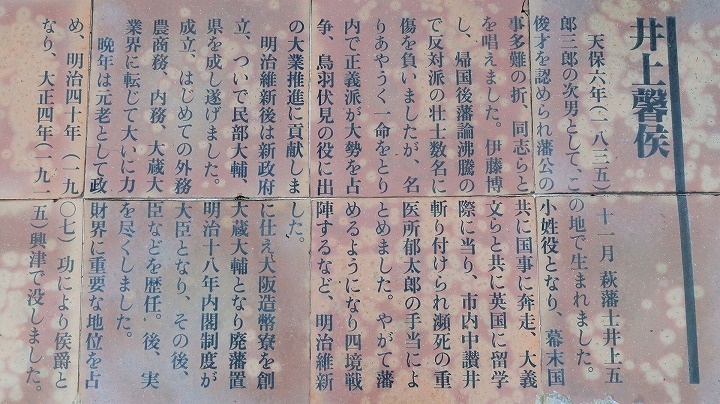 井上馨侯
天保六年(一八三五)十一月 萩藩士井上五
郎三郎の次男として、この地で生まれました。
俊才を認められ藩公の小姓役となり、幕末国
事多難の折、同志らと共に国事に奔走、大義
を唱えました。伊藤博文らと共に英国に留学
し、帰国後藩論沸騰の際に当り、市内中讃井
で反対派の壮士数名に斬り付けられ瀕死の重
傷を負いましたが、名医所郁太郎の手当によ
りあやうく一命をとりとめました。やがて藩
内で正義派が大勢を占めるようになり四境戦
争、鳥羽伏見の役に出陣するなど、明治維新
の大業推進に貢献しました。
明治維新後は新政府に仕え大阪造幣寮を創
立、ついで民部大輔、大蔵大輔となり廃藩置
県を成し遂げました。明治十八年内閣制度が
成立、はじめての外務大臣となり、その後、
農商務、内務、大蔵大臣などを歴任。後、実
業界に転じて大いに力を尽くしました。
晩年は元老として政財界に重要な地位を占
め、明治四十年(一九〇七)功により侯爵と
なり、大正四年(一九一五)興津で没しました。